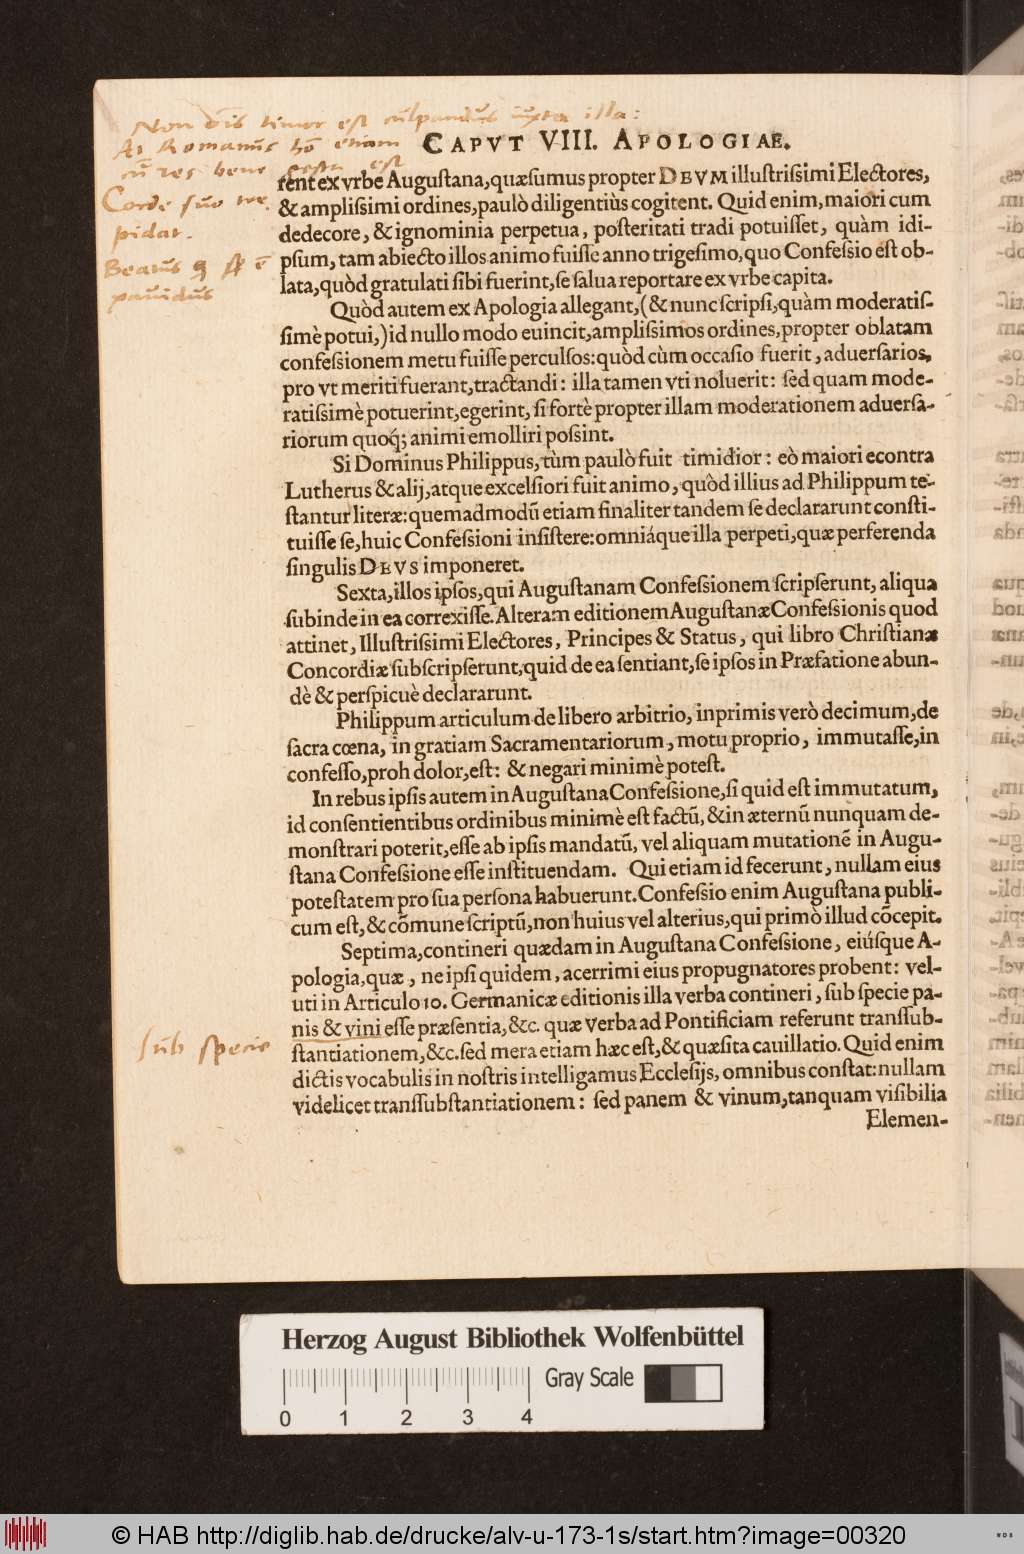 Non om̃is timor est culpandus iuxta illa:
At Romanus etiam
cũ res bene est
Corde suo tre
pidat.
Beatus ẽ
pauidus
CAPVT VIII. APOLOGIAE.
rent ex vrbe Augustana, quæsumus propter DEVM illustrissimi Electores,
& amplissimi ordines, paulò diligentiùs cogitent. Quid enim, maiori cum
dedecore, & ignominia perpetua, posteritati tradi potuisset, quàm idi-
psum, tam abiecto illos animo fuisse anno trigesimo, quo Confessio est ob-
lata, quòd gratulati sibi fuerint, se salua reportare ex vrbe capita.
Quòd autem ex Apologia allegant, (& nunc scripsi, quàm moderatis-
simè potui,) id nullo modo euincit, amplissimos ordines, propter oblatam
confessionem metu fuisse perculsos: quòd cùm occasio fuerit, aduersarios,
pro vt meriti fuerant, tractandi: illa tamen vti noluerit: sed quam mode-
ratissimè potuerint, egerint, si fortè propter illam moderationem aduersa-
riorum quoq́; animi emolliri possint.
Si Dominus Philippus, tùm paulò fuit timidior: eò maiori econtra
Lutherus & alij, atque excelsiori fuit animo, quòd illius ad Philippum te-
stantur literæ: quemadmodũ etiam finaliter tandem se declararunt consti-
tuisse se, huic Confessioni insistere: omniáque illa perpeti, quæ perferenda
singulis DEVS imponeret.
Sexta, illos ipsos, qui Augustanam Confessionem scripserunt, aliqua
subinde in ea correxisse. Alteram editionem Augustanæ Confessionis quod
attinet, Illustrissimi Electores, Principes & Status, qui libro Christianæ
Concordiæ subscripserunt, quid de ea sentiant, se ipsos in Præfatione abun-
dè & perspicuè declararunt.
Philippum articulum de libero arbitrio, inprimis verò decimum, de
sacra cœna, in gratiam Sacramentariorum, motu proprio, immutasse, in
confesso, proh dolor, est: & negari minimè potest.
In rebus ipsis autem in Augustana Confessione, si quid est immutatum,
id consentientibus ordinibus minimè est factũ, & in æternũ nunquam de-
monstrari poterit, esse ab ipsis mandatũ, vel aliquam mutationẽ in Augu-
stana Confessione esse instituendam. Qui etiam id fecerunt, nullam eius
potestatem pro sua persona habuerunt. Confessio enim Augustana publi-
cum est, & cõmune scriptũ, non huius vel alterius, qui primò illud cõcepit.
Septima, contineri quædam in Augustana Confessione, eiúsque A-
pologia, quæ, ne ipsi quidem, acerrimi eius propugnatores probent: vel-
uti in Articulo 10. Germanicæ editionis illa verba contineri, sub specie pa-
nis & vini esse præsentia, &c. quæ verba ad Pontificiam referunt transsub-
sub specie
stantiationem, &c. sed mera etiam hæc est, & quæsita cauillatio. Quid enim
dictis vocabulis in nostris intelligamus Ecclesijs, omnibus constat: nullam
videlicet transsubstantiationem: sed panem & vinum, tanquam visibilia
Elemen-
Herzog August Bibliothek Wolfenbüttel
Gray Scale
0 1 2 3 4
© HAB http://diglib.hab.de/drucke/alv-u-173-1s/start.htm?image=00320